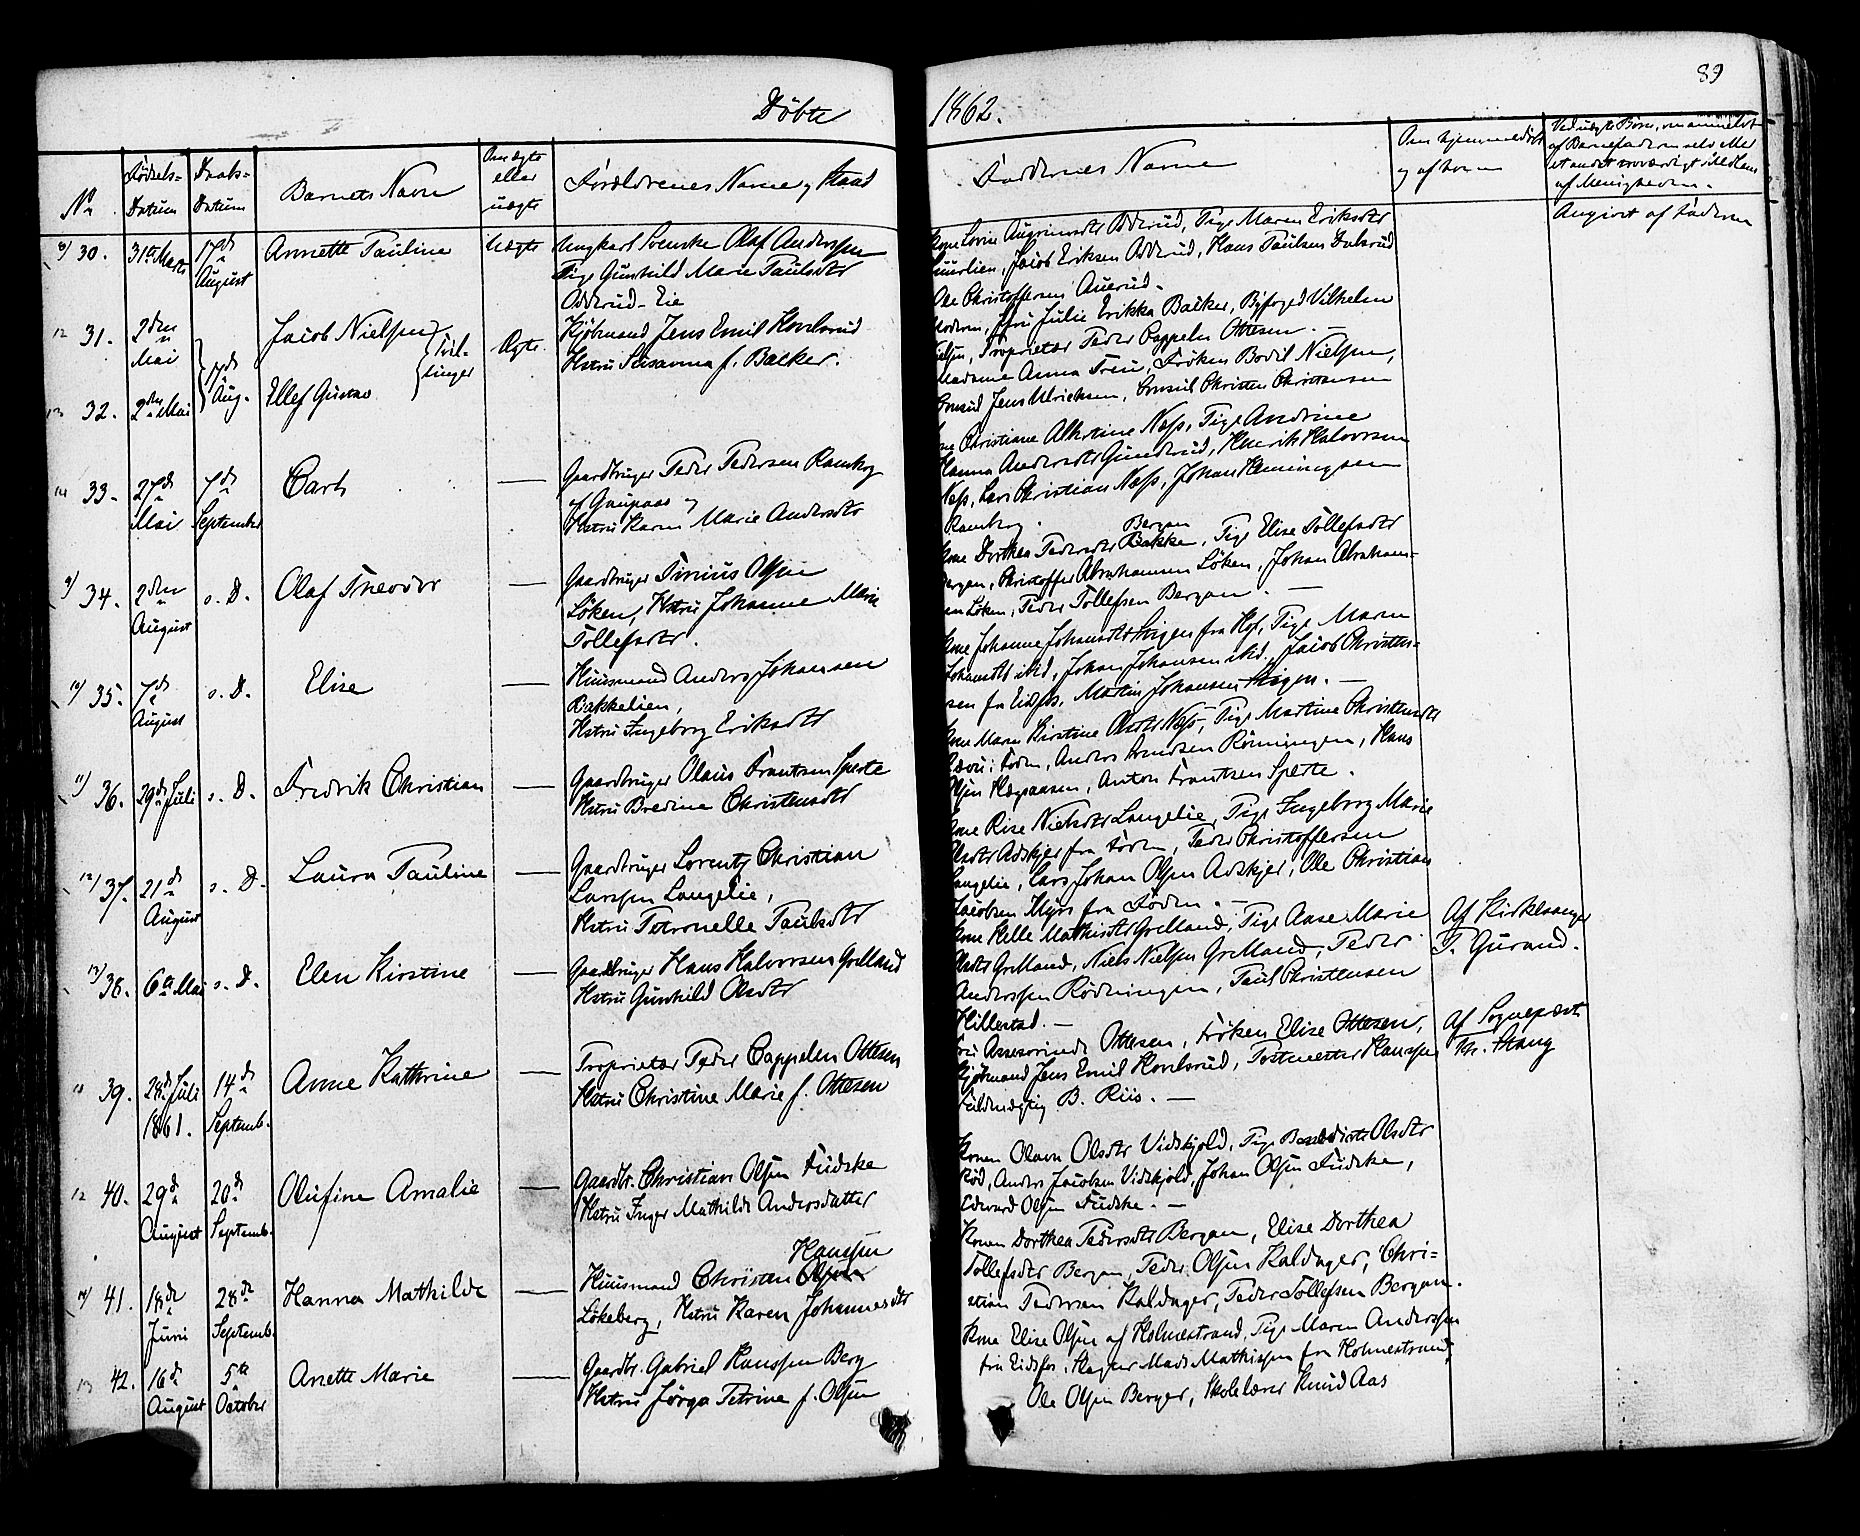 89
Döbte
1862.
No
Födsels-
Datum
Daabs-
Datum
Barnets Navn
Om ægte
eller
uægte
Forældrenes Navne og Stand
Faddernes Navne
Om hjemmedöbt
og af hvem
Ved uægte Börn, om anmeldt
af Barnefaderen selv eller
et andet troværdigt Medlem
af Menigheden.
8/ 30.
31te Marts
17de
August
Annette Pauline
Uægte
Ungkarl Svenske Olaf Anderssen
Pige Gunhild Marie Paulsdtr
Odderud-Eie
Odderud, Pige Maren Eriksdtr
Jacob Eriksen Odderud, Hans Paulsen
Ole Christoffersen Auerud.
Angivet af Faderen
12 31.
2den
Mai
17de
Aug.
Jacob Nielsen
Tvil-
linger
Ægte
Kjöbmand Jens Emil Hovlsrud
Hstru Susanna f. Backer.
Moderen, Fru Julie Erikka Backer, Byfoged Vilhelm
Nielsen, Proprietær Peder Cappelen Ottesen.
13 32.
2den Mai
Ellef Gustav
Madame Anna Treu, Fröken Bodil Nielsen,
Consul Jens Ulrichsen, Consul Christen Christensen
14 33.
27de
Mai
7de
September
Carl
Gaardbruger Peder Pedersen Ramberg
af Gaupaas og
Hstru Karen Marie Andersdtr
Kone Christiane Albertine Næss, Pige Andrine
Hanna Andersdtr Gunderud, Henrik Halvorsen
Næss, Lars Christian Næss, Johan Hemingsen
Ramberg.
9/ 34.
2den
August
s. D.
Olaf Theodor
Gaardbruger Tinius Olsen
Löken, Hstru Johanne Marie
Tollefsdtr.
Kone Dorthea Pedersdtr Bakken Bergan, Pige Elise Tollefsdtr
Bergan, Christoffer Abrahamsen Löken, Johan Abraham-
sen Löken, Peder Tollefsen Bergan.
10/ 35.
7de
August
s. D.
Elise
Huusmand Anders Johansen
Bakkelien,
Hstru Ingeborg Eriksdtr
Kone Johanne Johansdtr fra Hof, Pige Maren
Johansdtr ibid, Johan Johansen ibid, Jacob Christen-
sen fra Eidfos, Martin Johansen
11/ 36.
29de Juli
s. D.
Fredrik Christian
Gaardbruger Olaus Frantsen Sperte
Hstru Bredine Christensdtr
Kone Maren Kirstine Olsdtr Næss, Pige Martine Christensdtr
Anders Arndsen Rönningen, Hans
Olsen Haegaasen, Anton Frantsen Sperte.
12/ 37.
21de
August
s. D.
Laura Pauline
Gaardbruger Lorentz Christian
Larssen Langelie,
Hstru Petronelle Paulsdtr
Kone Rise Nielsdtr Langelie, Pige Ingeborg Marie
Olsdtr Adskjer fra Foden, Peder Christoffersen
Langelie, Lars Johan Olsen Adskjer, Ole Christian
Jacobsen Myrs fra Foden.
13/ 38.
6te Mai
s. D.
Elen Kirstine
Gaardbruger Hans Halvorsen Grelland
Hstru Gunhild Olsdtr
Kone Helle Mathisdtr Grelland, Pige Aase Marie
Olsdtr Grelland, Niels Nielsen Grelland, Peder
Anderssen Rödningen, Paul Christensen
Hillestad.
Af Kirkesanger
T. Gurand.
10 39.
28de Juli
1861.
14de
Septemb.
Anne Kathrine
Proprietær Peder Cappelen Ottesen
Hstru Christine Marie f. Ottesen
Fru Assessorinde Ottesen, Fröken Elise Ottesen,
Kjöbmand Jens Emil Hovlsrud, Postmester Hanssen,
Fuldmægtig B. Riis.
Af Sognepræst
Th. Stang
12 40.
29de
August
20de
Septemb.
Olufine Amalie
Gaardbr. Christian Olsen Fudske
Hstru Inger Mathilde Andersdatter
Konen Olava Olsdtr Vidskjold, Pige Benedicte Olsdtr
Röd, Anders Jacobsen Vidskjold, Johan Olsen Fudske,
Edvard Olsen Fudske.
14/ 41.
18de
Juni
28de
Septemb.
Hanna Mathilde
Hanssen
Huusmand Christen Olsen
Lökeberg, Hstru Karen Johannesdtr
Konen Dorthea Pedersdtr Bergan, Elise Dorthea
Tollefsdtr Bergan, Peder Olsen Kaldager, Chri-
stian Pedersen Kaldager, Peder Tollefsen Bergan.
13 42.
16de
August
5te
October
Anette Marie
Gaardbr. Gabriel Hanssen Berg
Hstru Jörga Petrine f. Olsen
Kone Elise Olsen af Holmestrand, Pige Maren Anderssen
fra Eidsfos, Mads Mathissen fra Holmestrand,
Ole Olsen Berger, Skolelærer Knud Aas